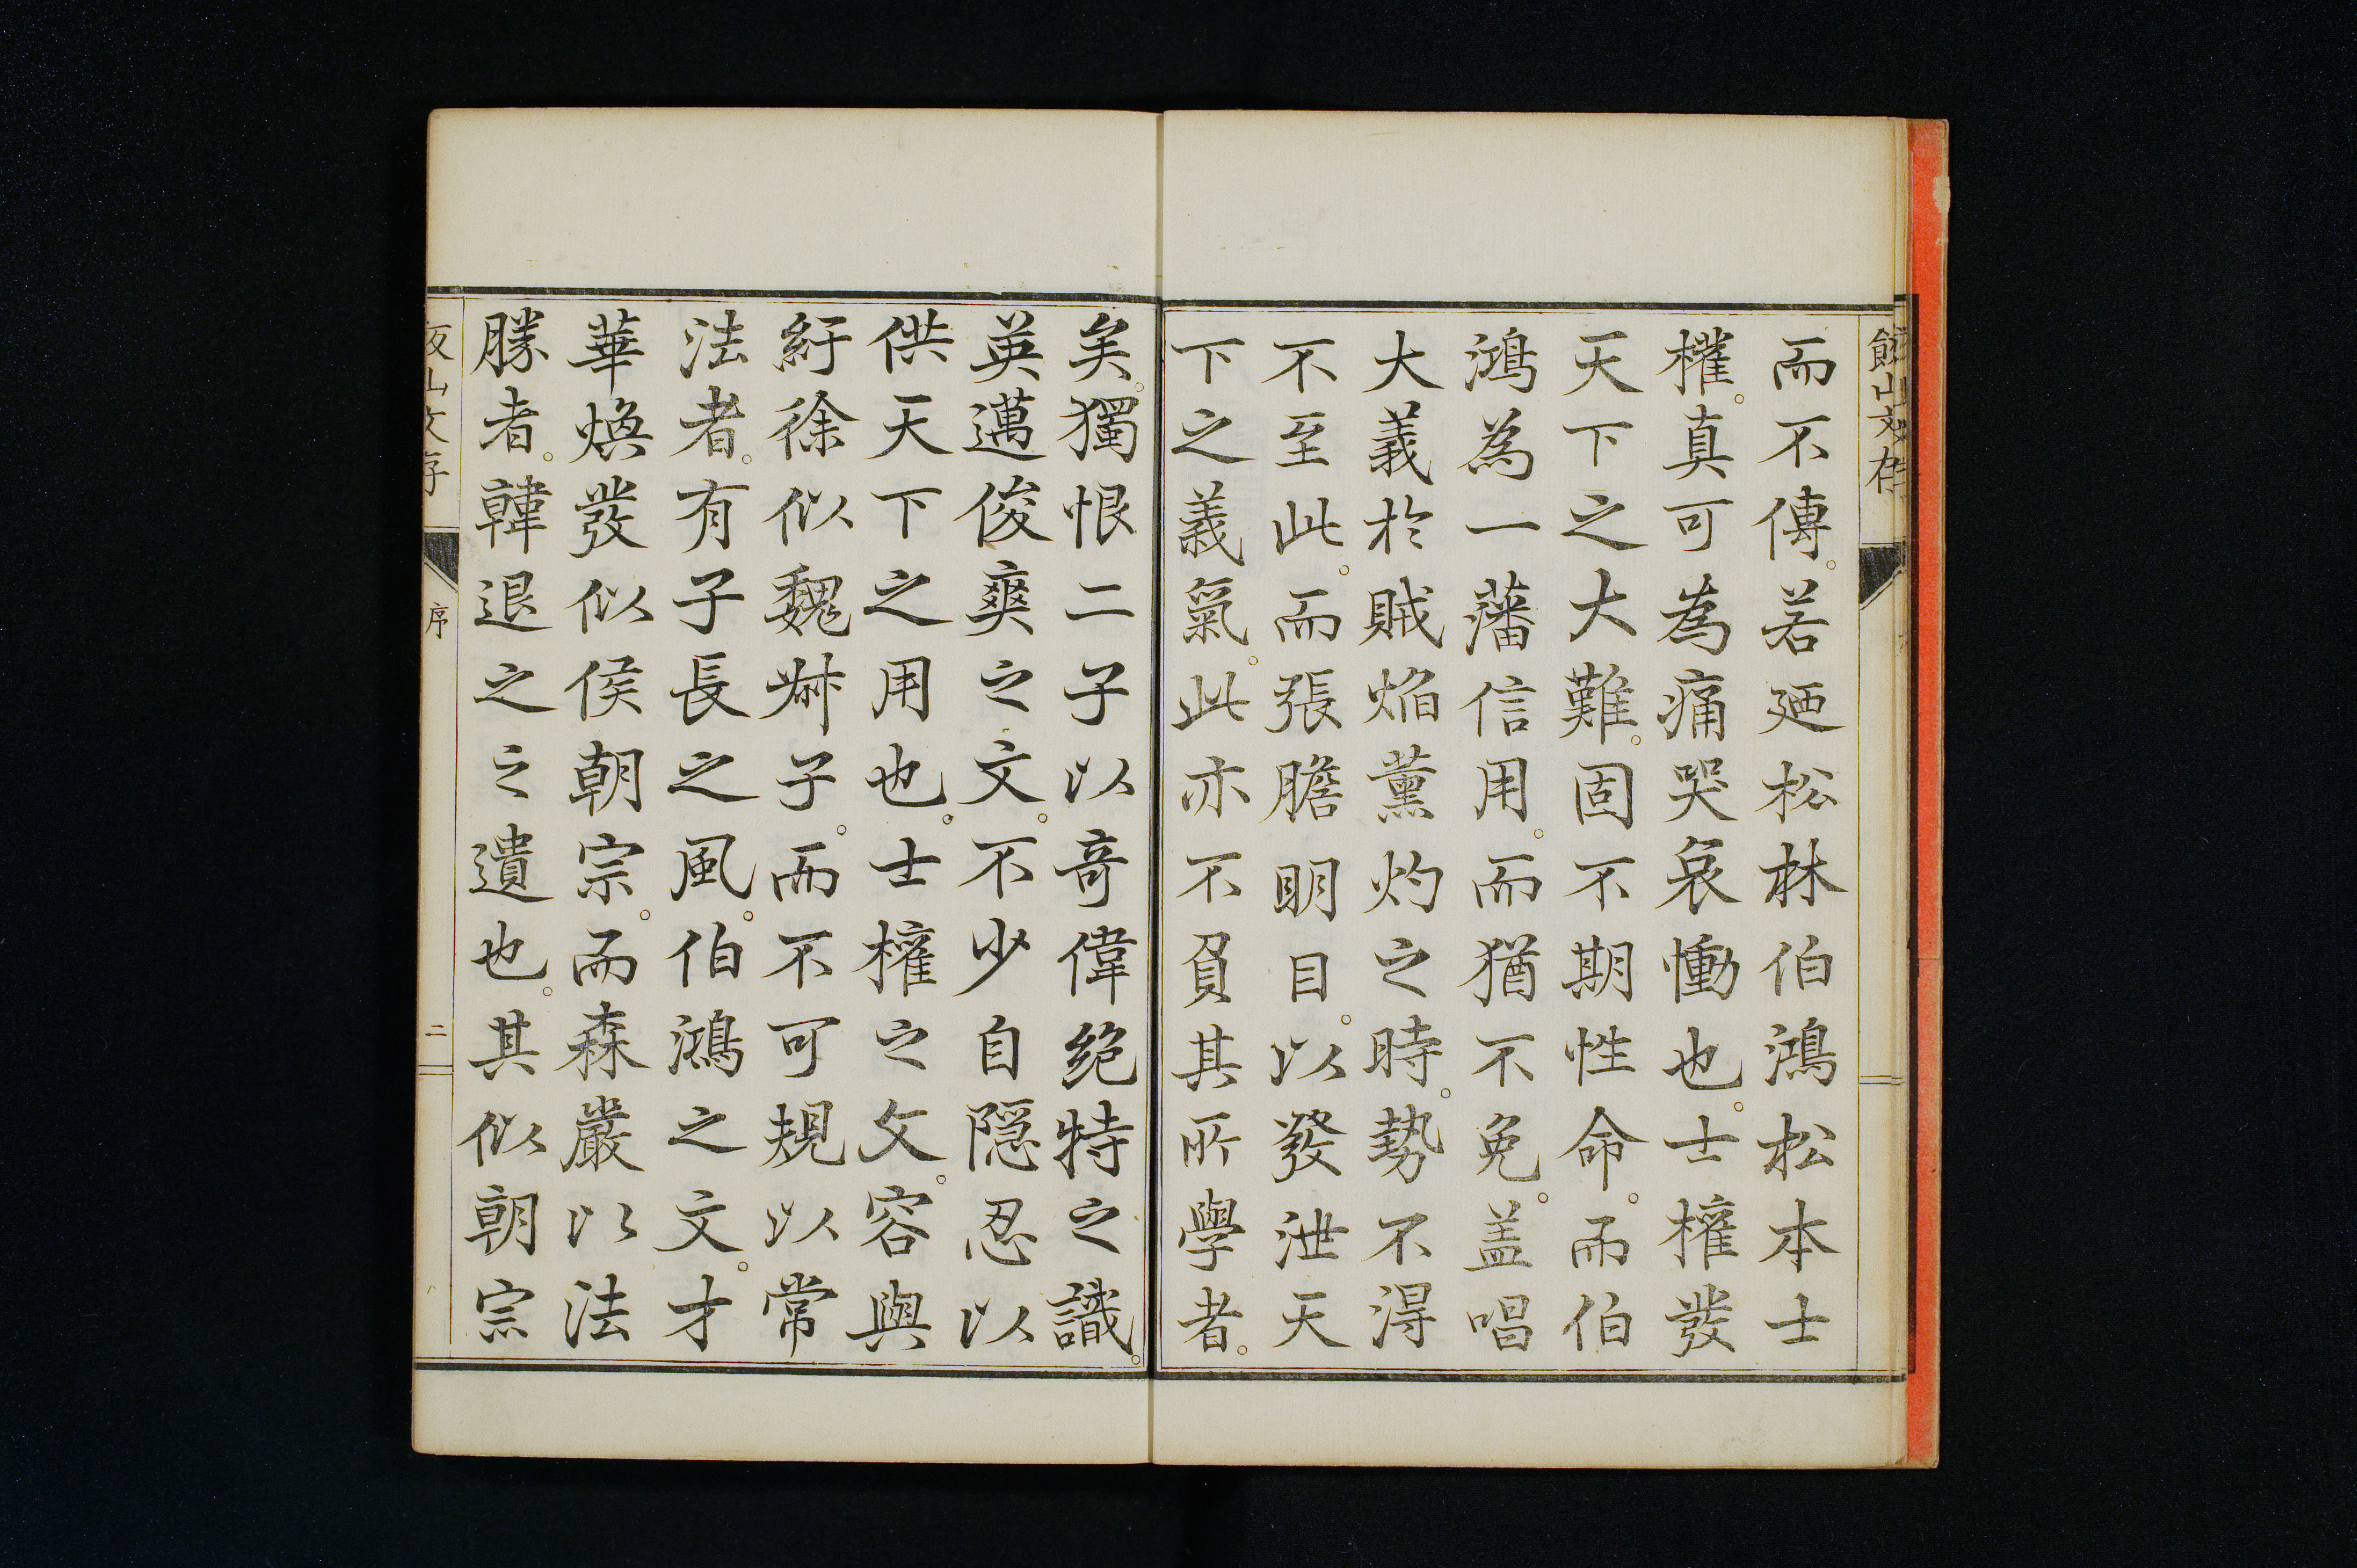 而不傳。若𢌞松林伯鴻松本士
權。真可為痛哭哀慟也。士權發
天下之大難。固不期性命。而伯
鴻為一藩信用。而猶不免。盖唱
大義於賊焰薫灼之時。勢不得
不至此。而張膽明目。以發泄天
下之義氣。此亦不負其所學者。
矣。獨恨二子以奇偉絶特之識。
英邁俊爽之文。不少自隠忍以
供天下之用也。士權之文。容與
紆徐似魏叔子。而不可規以常
法者。有子長之風。伯鴻之文。才
華煥發似侯朝宗。而森嚴以法
勝者。韓退之之遺也。其似朝宗
山文存
序
二